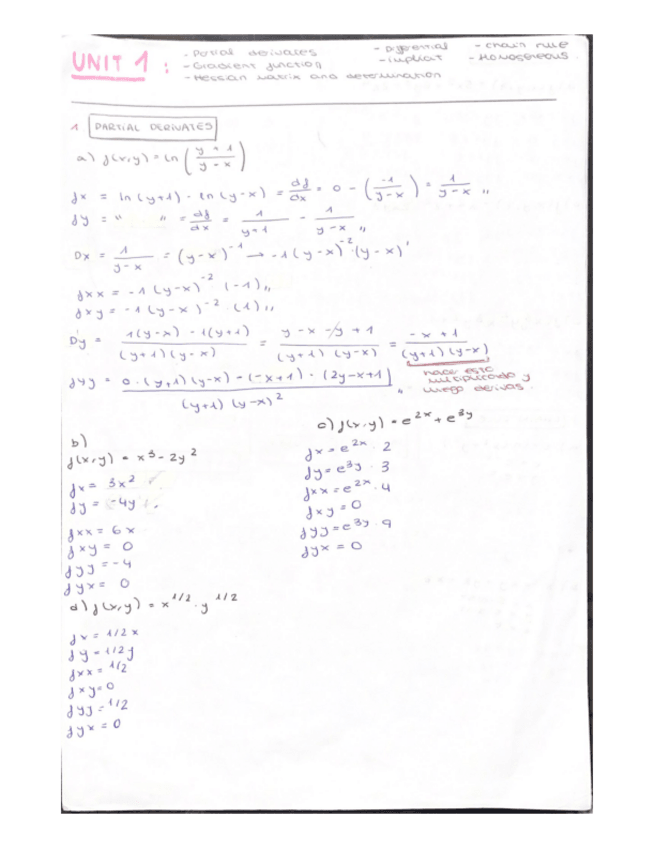 UNIT 1 :
- Partial derivates
- Gradient function
- Hessian matrix and determination
- Differential
- implicit
- chain rule
- Homogeneous.
1 PARTIAL DERIVATES
a) f(x,y) = ln ( y + 1 / y - x )
fx = ln (y+1) - ln (y-x) = df/dx = 0 - ( -1 / y-x ) = 1 / y-x ,,
fy = " " = df/dx = 1 / y+1 - 1 / y-x ,,
Dx = 1 / y-x = (y-x)^-1 → -1 (y-x)^-2 · (y-x)'
fxx = -1 (y-x)^-2 (-1) ,,
fxy = -1 (y-x)^-2 · (1) ,,
D'y = 1(y-x) - 1(y+1) / (y+1)(y-x) = y-x-y+1 / (y+1)(y-x) = -x+1 / (y+1)(y-x)
hacer esto
multiplicado y
luego derivas.
fyy = 0·(y+1)(y-x) - (-x+1) · (2y-x+1) / (y+1)(y-x)^2 ,,
b)
f(x,y) = x^3 - 2y^2
fx = 3x^2
fy = -4y
fxx = 6x
fxy = 0
fyy = -4
fyx = 0
c) f(x,y) = e^2x + e^3y
fx = e^2x · 2
fy = e^3y · 3
fxx = e^2x · 4
fxy = 0
fyy = e^3y · 9
fyx = 0
d) f(x,y) = x^1/2 · y^1/2
fx = 1/2 x
fy = 1/2 y
fxx = 1/2
fxy = 0
fyy = 1/2
fyx = 0